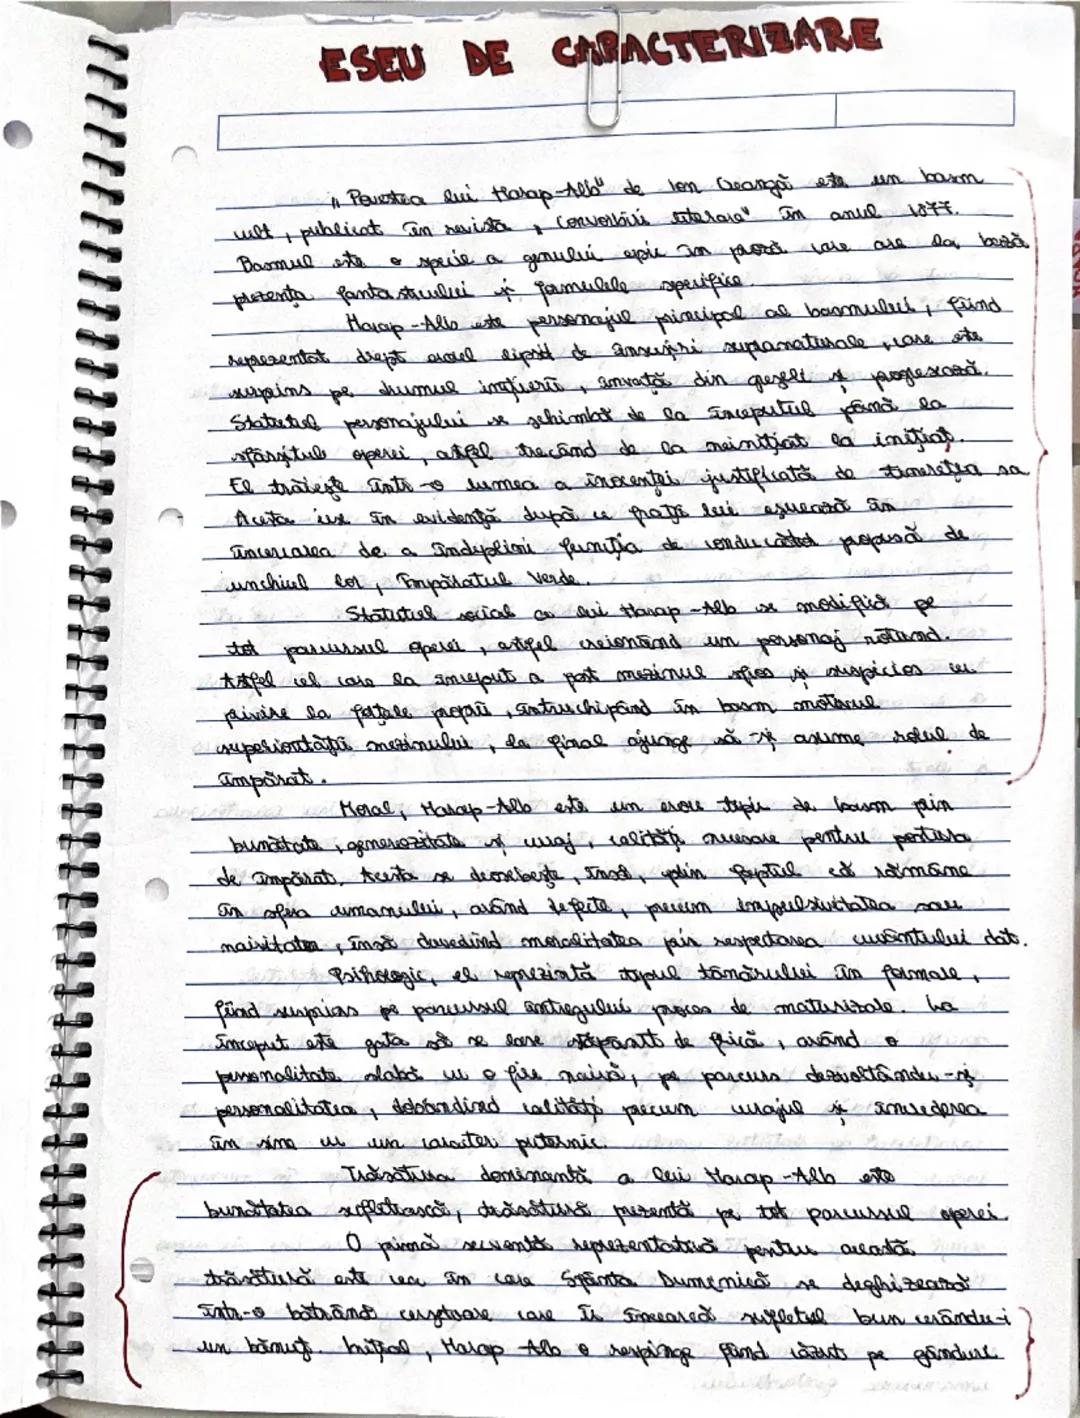 ESEU DE CARACTERIZARE
„Povestea lui Harap-Alb" de Ion Creangă este un basm
cult, publicat în revista „Convorbiri literare" în anul 1877.
Basmul este o specie a genului epic în proză care are la bază
prezența fantasticului și formulele specifice.
Harap-Alb este personajul principal al basmului, fiind
reprezentat drept eroul lipsit de însușiri supranaturale, care este
surprins pe drumul inițierii, învață din greșeli și progresează.
Statutul personajului se schimbă de la începutul până la
sfârșitul operei, astfel trecând de la neinițiat la inițiat.
El trăiește într-o lumea a inocenței justificată de tinerețea sa
Acesta iese în evidență după ce frații lui eșuează în
încercarea de a îndeplini funcția de conducător propusă de
unchiul lor, Împăratul Verde.
Statutul social a lui Harap-Alb se modifică pe
tot parcursul operei, astfel creionând un personaj rotund.
Astfel cel care la început a fost mezinul sfios și suspicios cu
privire la forțele proprii, întruchipând în basm motivul
superiorității mezinului, la final ajunge să-și asume rolul de
împărat.
Moral, Harap-Alb este un erou tipic de basm prin
bunătate, generozitate și curaj, calități necesare pentru postura
de împărat. Acesta se deosebește, însă, prin faptul că rămâne
în sfera umanului, având defecte, precum impulsivitatea sau
naivitatea, însă dovedind moralitatea prin respectarea cuvântului dat.
Psihologic, el reprezintă tipul tânărului în formare,
fiind surprins pe parcursul întregului proces de maturizare. La
început este gata să se lase stăpânit de frică, având o
personalitate slabă cu o fire naivă, pe parcurs dezvoltându-și
personalitatea, dobândind calități precum curajul și încrederea
în sine cu un caracter puternic.
Trăsătura dominantă a lui Harap-Alb este
bunătatea sufletească, trăsătură prezentă pe tot parcursul operei.
O primă secvență reprezentativă pentru această
trăsătură este cea în care Sfânta Duminică se deghizează
într-o bătrână cerșetoare care îi încearcă sufletul bun cerându-i
un bănuț. Inițial, Harap-Alb o respinge fiind căzut pe gânduri